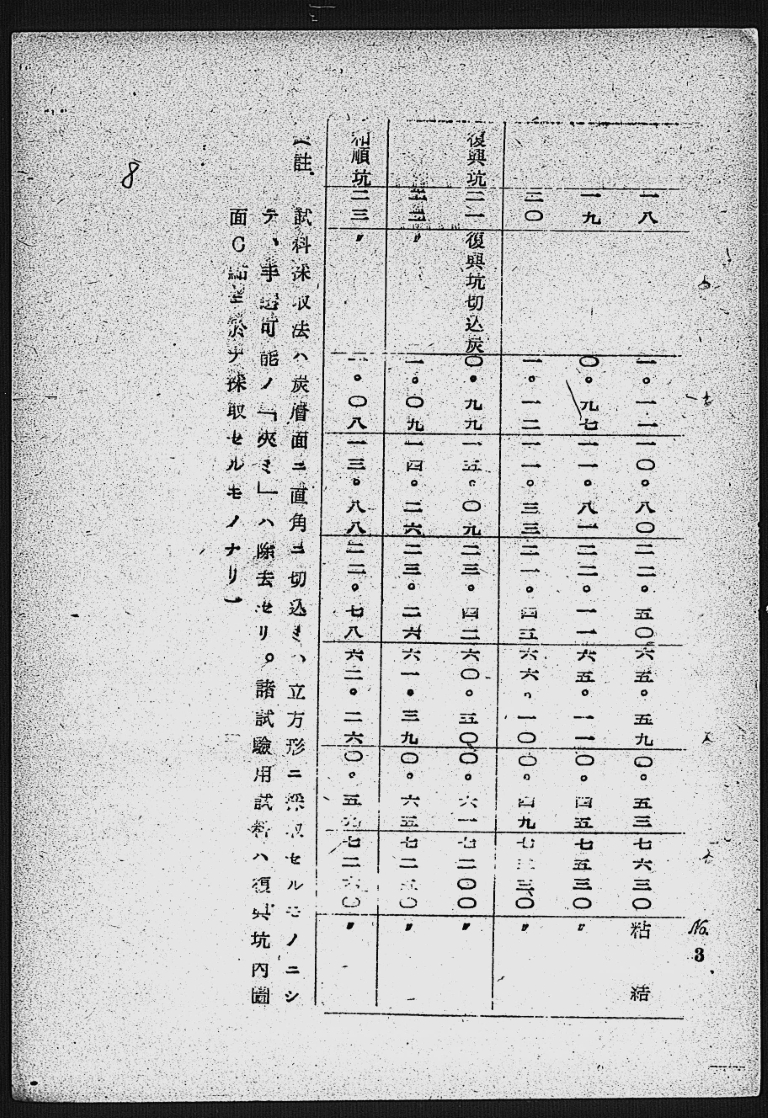 No.3
一八 一。一一 一〇。八〇 二二。五〇 六五。五九 〇。五三 七六三〇 粘結
一九 〇。九七 一一。八一 二二。一一 六五。一一 〇。四五 七五三〇 〃
二〇 一。一二 一一。三三 二一。四五 六六。一〇 〇。四九 〃
復興坑 二一 復興坑切込炭 〇。九九 一五。〇九 二三。四二 六〇。五〇 〇。六一 七二〇〇 〃
二二 〃 一。〇九 一四。二六 二三。二六 六一。三九 〇。六五 七二五〇 〃
和順坑 二三 〃 一。〇八 一三。八八 二二。七八 六二。二六 七二六〇 〃
(註. 試料採取法ハ炭層面ニ直角ニ切込ミ、立方形ニ採取セルモノニシ
テ、手選可能ノ「夾ミ」ハ除去セリ。諸試驗用試料ハ復興坑內圖
面C點ニ於テ採取セルモノナリ)
8